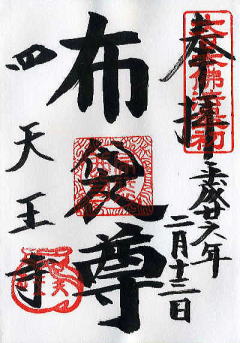 奉拝
平成廿六年
二月十三日
布袋尊
四天王寺